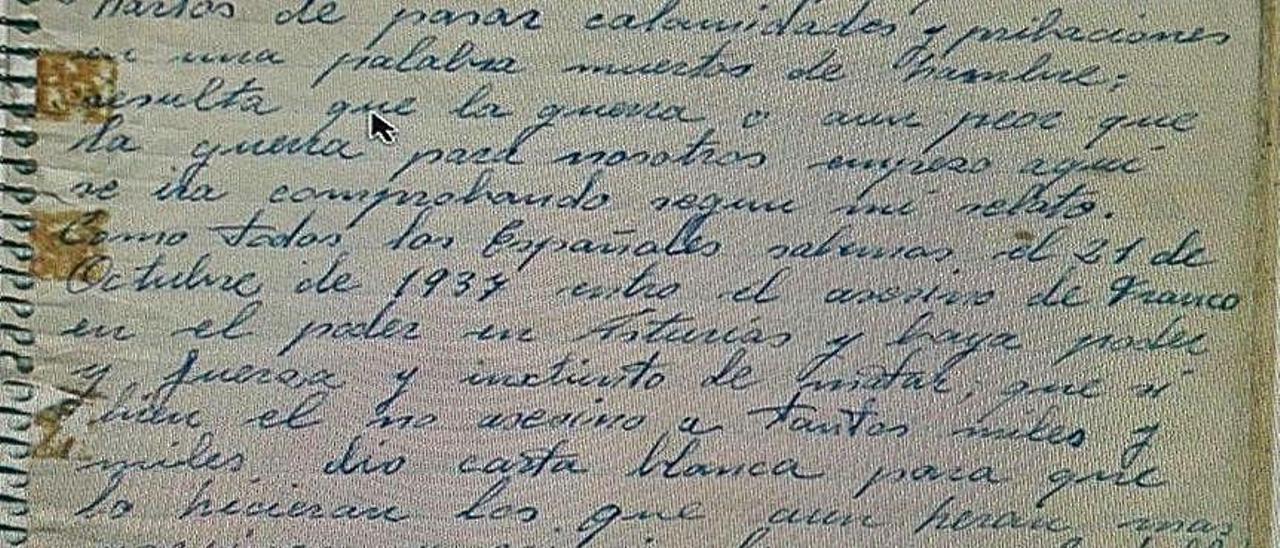 Hartos de pasar calamidades y pribaciones
en una palabra muertos de hambre;
resulta que la guerra o aun peor que
la guerra para nosotros empezo aqui
se ira comprobando segun mi relato.
Como todos los Españoles sabemos, el 21 de
Octubre de 1937 entro el asesino de Franco
en el poder en Asturias y baya poder
y fuerza y instinto de matar, que si
bien el no asesino a tantos miles y
miles, dio carta blanca para que
lo hicieran los que aun heran mas